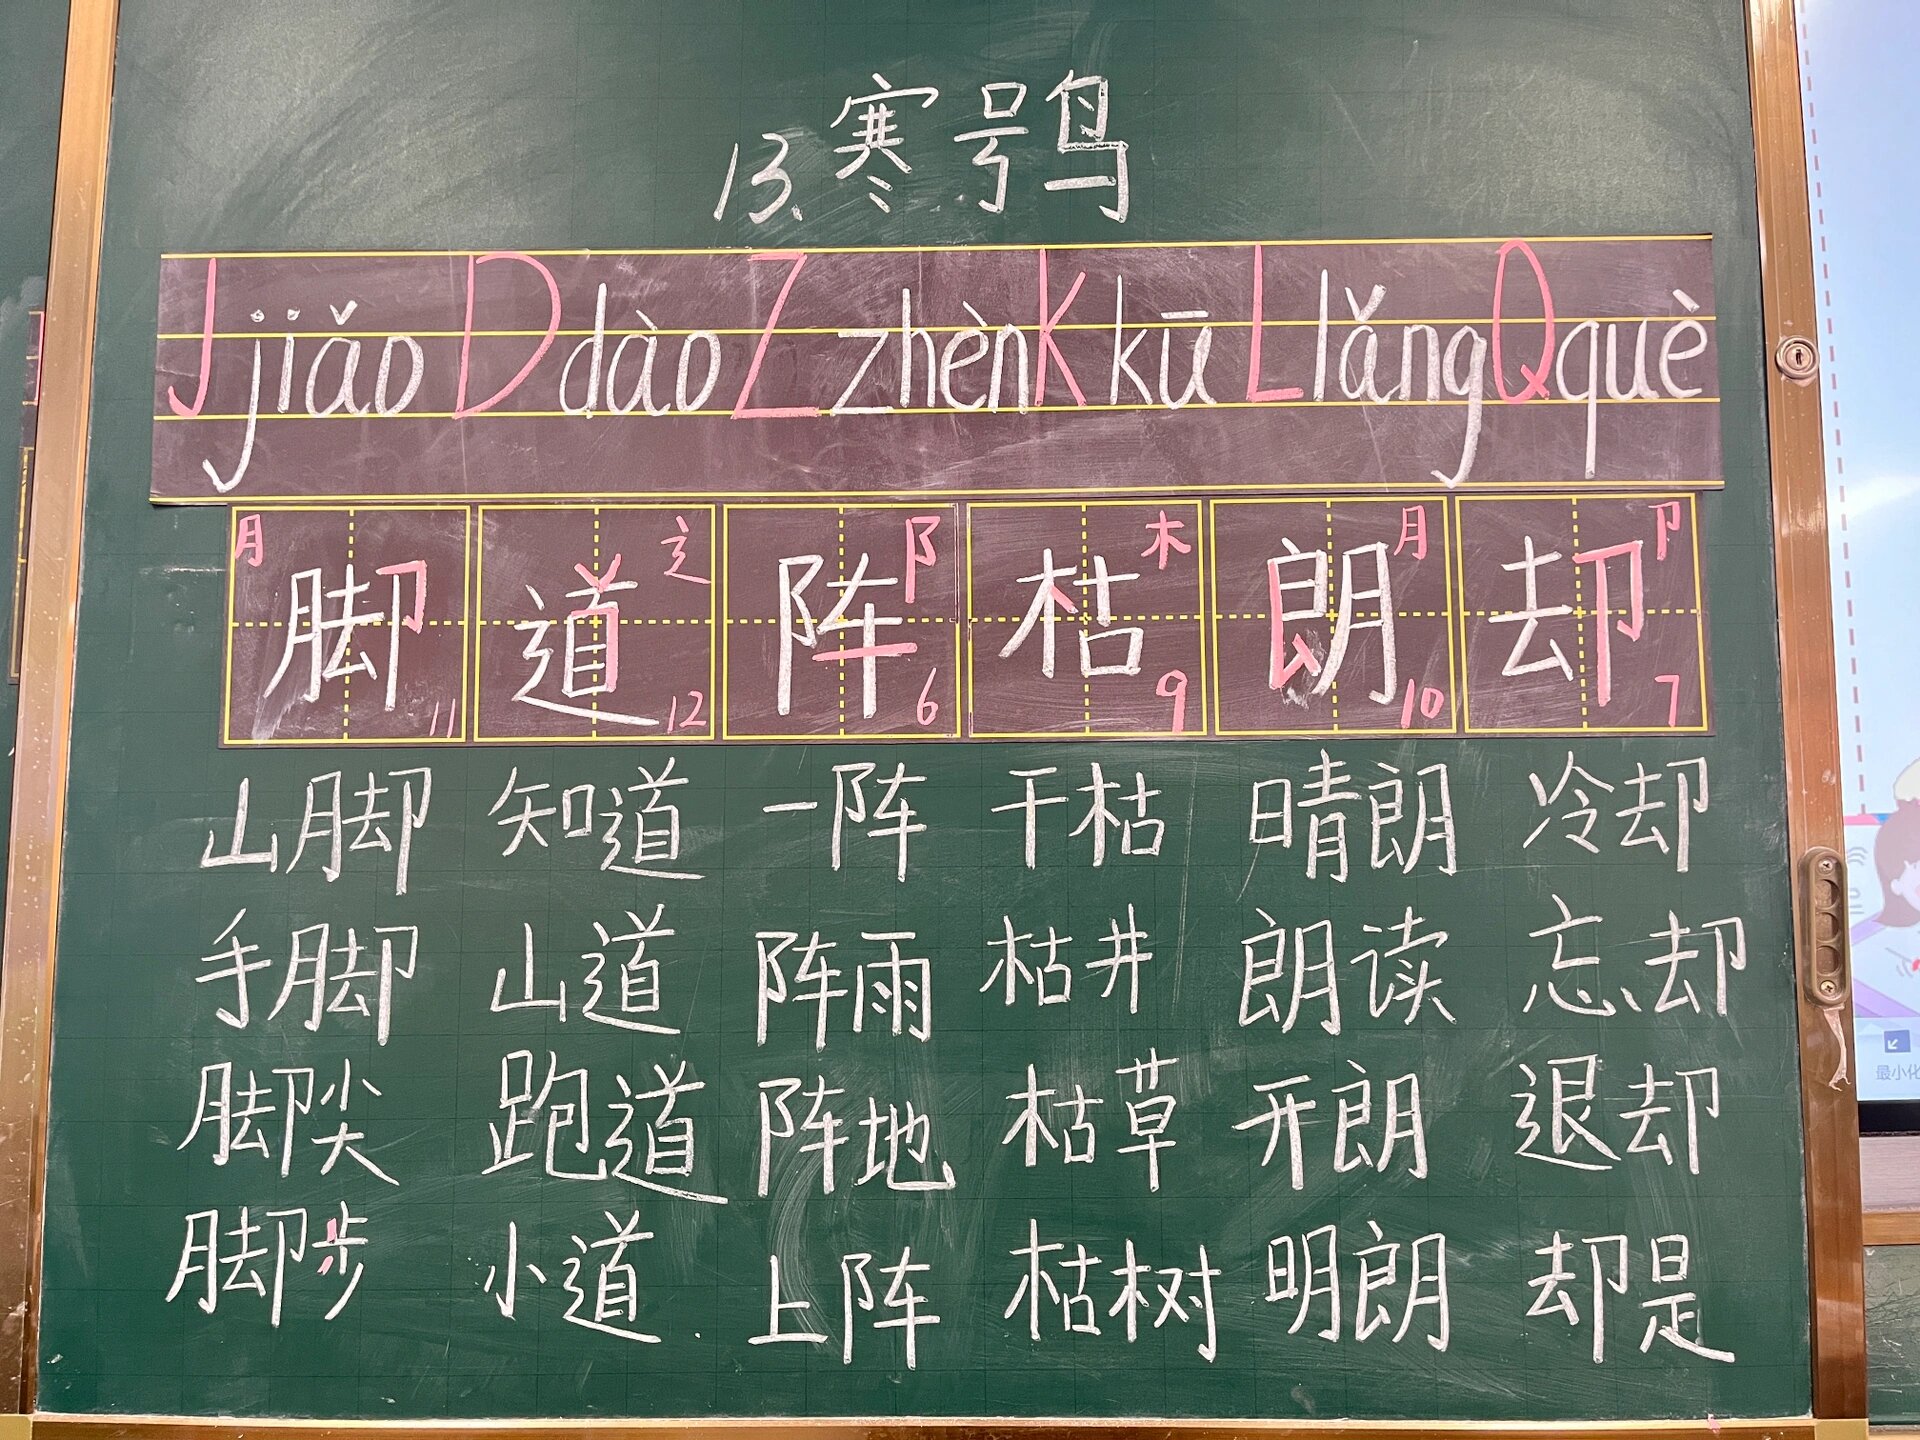 13.寒号鸟
J jiǎo D dào Z zhèn K kū L lǎng Q què
月 辶 阝 木 月 卩
脚 道 阵 枯 朗 却
11 12 6 9 10 7
山脚 知道 一阵 干枯 晴朗 冷却
手脚 山道 阵雨 枯井 朗读 忘却
脚尖 跑道 阵地 枯草 开朗 退却
脚步 小道 上阵 枯树 明朗 却是
最小化